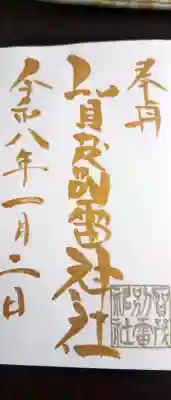 奉拝
賀茂別雷神社
賀茂
別雷
神社
令和八年一月二日